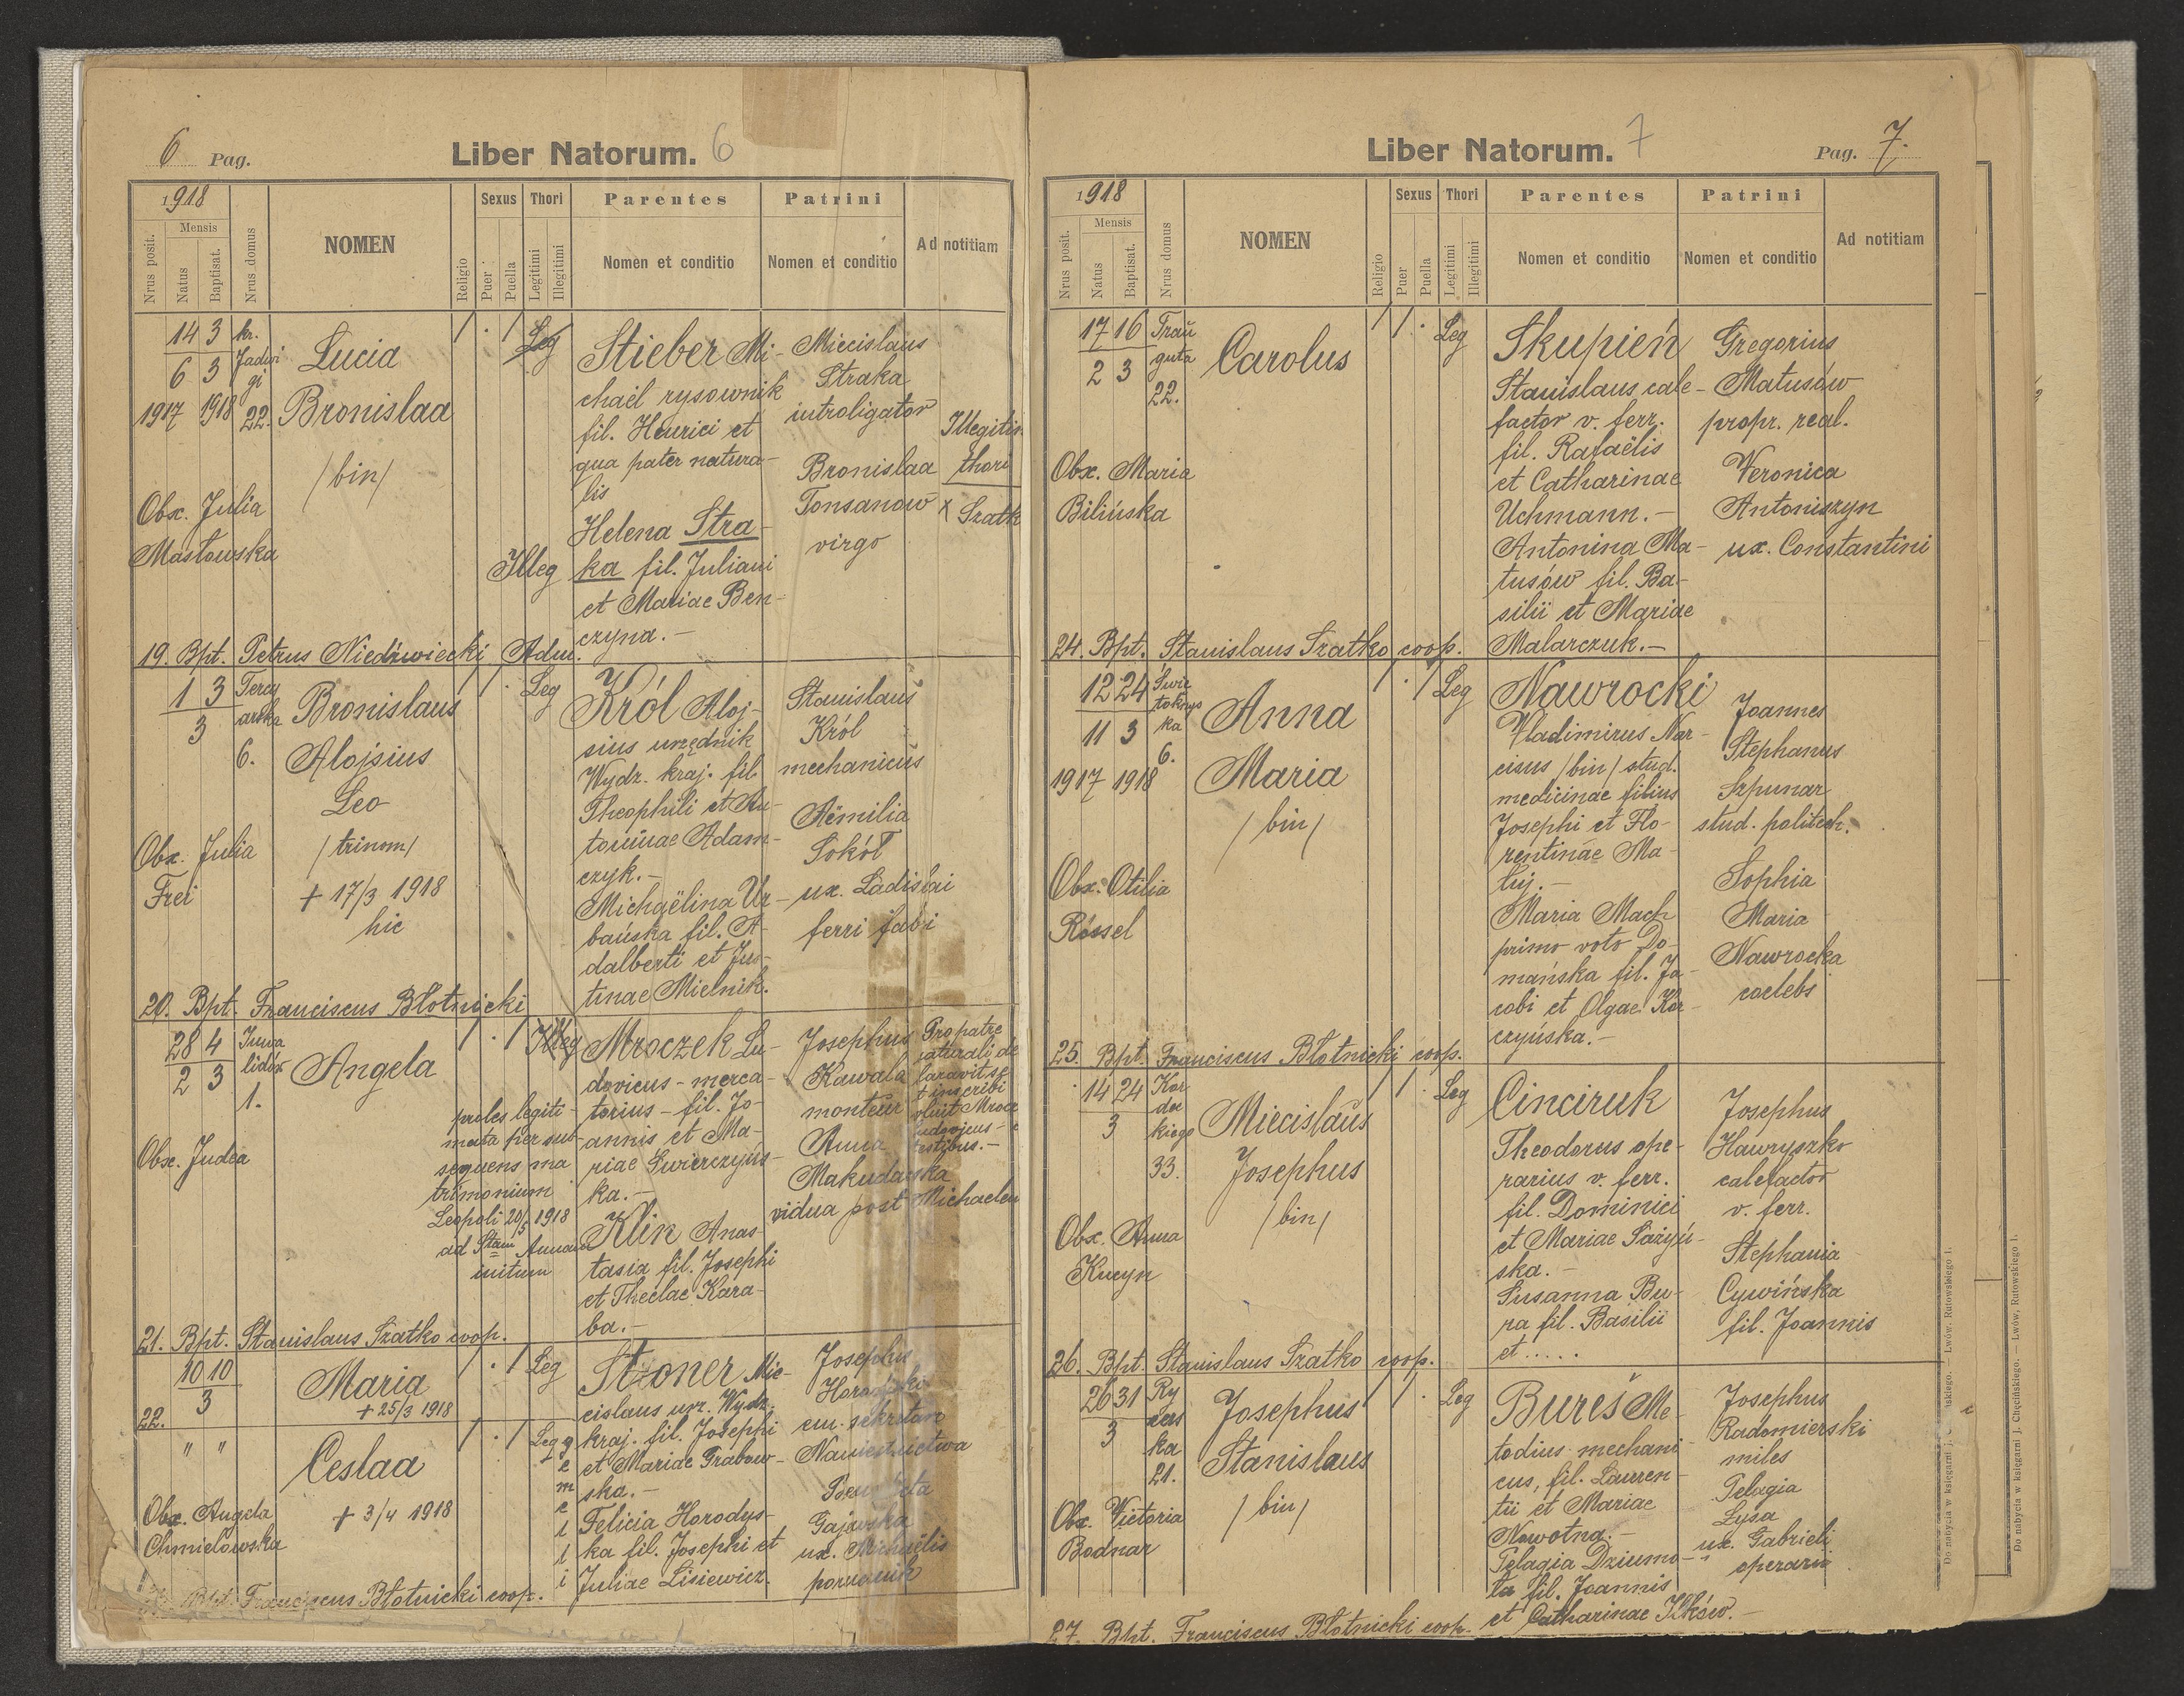 6 Pag. Liber Natorum. 6
1918
Nrus posit.
Mensis
Natus
Baptisat.
Nrus domus
NOMEN
Religio
Sexus
Puer
Puella
Thori
Legitimi
Illegitimi
Parentes
Nomen et conditio
Patrini
Nomen et conditio
Ad notitiam
14 3 kr.
Jadwi
gi
6 3
1917 1918 22.
Lucia
Bronislaa
/bin/
Obx. Julia
Masłowska
1 . 1 Leg
Illeg
Stieber Mi-
chaël rysownik
fil. Henrici et
qua pater natura-
lis
Helena Stra-
ka fil. Juliani
et Mariae Ben-
czyna.-
Miecislaus
Straka
introligator
Bronislaa
Tonsanow
virgo
Illegitim
thori
x Szatk
19. Bpt. Petrus Niedźwiecki Adm.
1 3
3
6.
Bronislaus
Alojsius
Leo
/trinom/
+ 17/3 1918
hic
Obx. Julia
Frei
1 . Leg
Król Aloj-
sius urzędnik
Wydz. kraj. fil.
Theophili et An-
toninae Adam-
czyk.-
Michaëlina Ur-
bańska fil. A-
dalberti et Jus-
tinae Mielnik.
Stanislaus
Król
mechanicus
Aemilia
Sokół
ux. Ladislai
ferri fabri
20. Bpt. Franciscus Błotnicki
28 4 Inwa
2 3 lidów
1.
Angela
Obx. Judea
proles legiti-
mata per sub-
sequens ma
trimonium
Leopoli 20/5 1918
ad Stam Annam
initum
1 . 1 Illeg
Mroczek Lu-
dovicus - merca-
torius - fil. Jo-
annis et Ma-
riae Świerczyńs-
ka.-
Klik Anas-
tasia fil. Josephi
et Theclae Kara-
ba.-
Josephus
Kawala
monteur
Anna
Makudańska
vidua post Michaelem
Pro patre
naturali de
claravit se
et inscribi
voluit Mrocz
Ludovicus - c
testibus.-
21. Bpt. Stanislaus Szatko coop.
10 10
3
22.
Maria
+ 25/3 1918
1 . 1 Leg
" "
Ceslaa
+ 3/4 1918
1 . 1 Leg
g
e
m
e
l
l
i
Obx. Angela
Chmielowska
Stoner Mie-
cislaus urz. Wydz.
kraj. fil. Josephi
et Mariae Grabow-
ska.-
Felicia Horodys-
ka fil. Josephi et
Juliae Lisiewicz.
Josephus
em. sekretarz
Namiestnictwa
Gajewska
ux. Michaëlis
porucznik
Bpt. Franciscus Błotnicki coop.
Liber Natorum. 7 Pag. 7.
1918
Nrus posit.
Mensis
Natus
Baptisat.
Nrus domus
NOMEN
Religio
Sexus
Puer
Puella
Thori
Legitimi
Illegitimi
Parentes
Nomen et conditio
Patrini
Nomen et conditio
Ad notitiam
17 16 Trau
2 3 guta
22.
Carolus
Obx. Maria
Bilińska
1 1 . Leg
Skupień
Stanislaus cale-
factor v. ferr.
fil. Rafaëlis
et Catharinae
Uchmann.-
Antonina Ma-
tusów fil. Ba-
silii et Mariae
Malarczuk.-
Gregorius
Matusów
propr. real.
Veronica
Antoniszyn
ux. Constantini
24. Bpt. Stanislaus Szatko coop.
12 24 Świę
tokrzys
11 3 ka
6.
1917 1918
Anna
Maria
/bin/
Obx. Otilia
Rössel
1 . 1 Leg
Nawrocki
Vladimirus Nar-
cisus /bin/ stud.
medicinae filius
Josephi et Flo-
rentinae Ma-
lij.-
Maria Mach
primo voto Do-
mańska fil. Ja-
cobi et Olgae Kor-
czyńska.-
Joannes
Stephanus
Szpunar
stud. politech.
Sophia
Maria
Nawrocka
caelebs
25. Bpt. Franciscus Błotnicki coop.
14 24 Kor
dec
3 kiego
33.
Miecislaus
Josephus
/bin/
Obx. Anna
Kucyn
1 1 . Leg
Cinciruk
Theodorus ope-
rarius v. ferr.
fil. Dominici
et Mariae Sażyń-
ska.-
Susanna Bu-
ra fil. Basilii
et.....
Josephus
Hawryszko
calefactor
v. ferr.
Stephania
Cywińska
fil. Joannis
26. Bpt. Stanislaus Szatko coop.
26 31 Ry
cers
3 ka
21.
Josephus
Stanislaus
/bin/
Obx. Victoria
Bodnar
1 1 . Leg
Bureš Me-
todius mechani-
cus, fil. Lauren-
tii et Mariae
Nowotna.-
Pelagia Dziumo-
ta fil. Joannis
et Catharinae Ilków.-
Josephus
Radomierski
miles
Pelagia
Lysa
ux. Gabrieli
operarii
27. Bpt. Franciscus Błotnicki coop.
Do nabycia w księgarni J. Chęcińskiego. — Lwów, Rutowskiego 1.